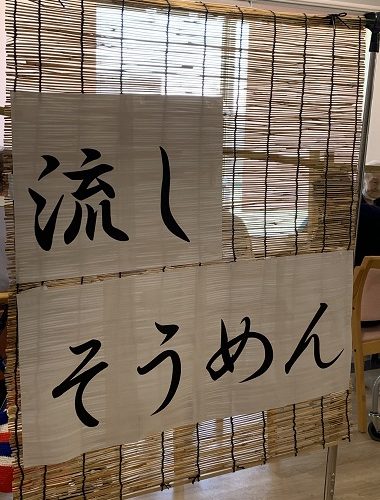 流し
そうめん